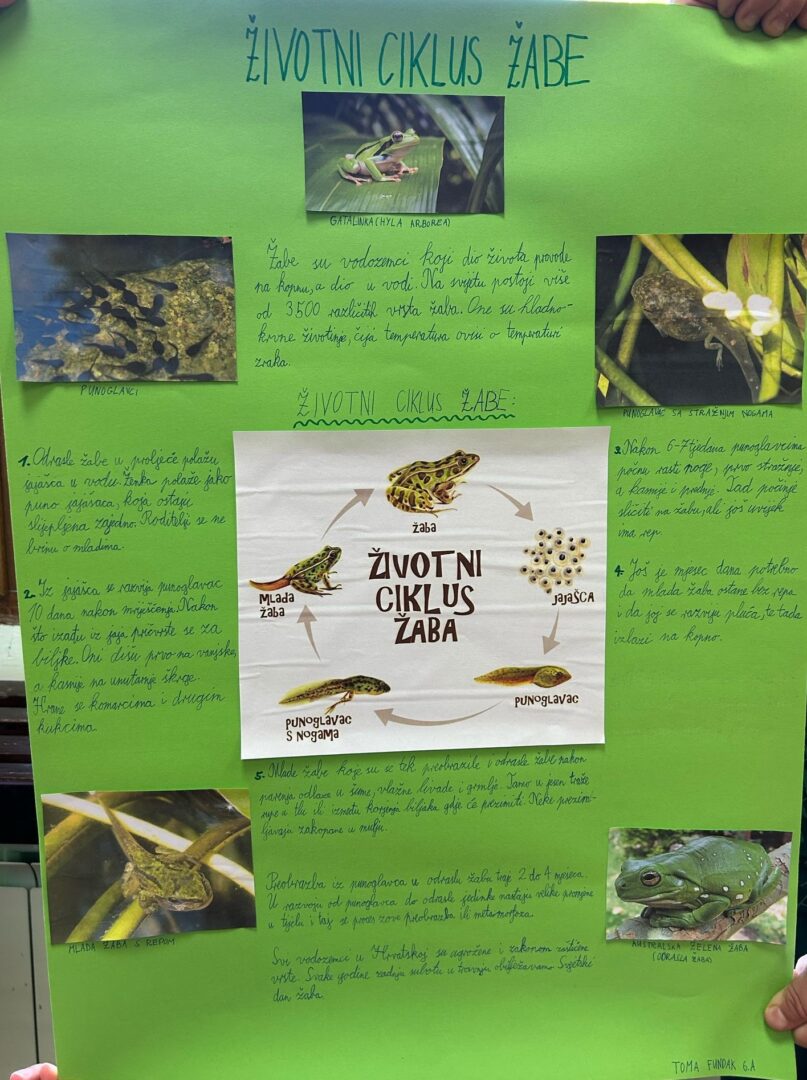 ŽIVOTNI CIKLUS ŽABE
GATALINKA (HYLA ARBOREA)
Žabe su vodozemci koji dio života provode
na kopnu, a dio u vodi. Na svijetu postoji više
od 3500 različitih vrsta žaba. One su hladno-
krvne životinje, čija temperatura ovisi o temperaturi
zraka.
PUNOGLAVCI
PUNOGLAVAC SA STRAŽNJIM NOGAMA
ŽIVOTNI CIKLUS ŽABE:
1. Odrasle žabe u proljeće polažu
jajašca u vodu. Ženka polaže jako
puno jajašaca, koja ostaju
slijepljena zajedno. Roditelji se ne
brinu o mladima.
2. Iz jajašca se razvija punoglavac
10 dana nakon mriješćenja. Nakon
što izađu iz jaja pričvrste se za
biljke. Oni dišu prvo na vanjske,
a kasnije na unutarnje škrge.
Hrane se komarcima i drugim
kukcima.
žaba
jajašca
Punoglavac
Punoglavac
s nogama
Mlada
žaba
ŽIVOTNI
CIKLUS
ŽABA
3. Nakon 6-7 tjedana punoglavcima
počnu rasti noge, prvo stražnje,
a kasnije i prednje. Tad počinje
sličiti na žabu, ali još uvijek
ima rep.
4. Još je mjesec dana potrebno
da mlada žaba ostane bez repa
i da joj se razviju pluća, te tada
izlazi na kopno.
5. Mlade žabe koje su se tek preobrazile i odrasle žabe nakon
parenja odlaze u šume, vlažne livade i grmlje. Tamo u jesen traže
rupe u tlu ili između korijenja biljaka gdje će prezimiti. Neke prezim-
ljavaju zakopane u mulju.
Preobrazba iz punoglavca u odraslu žabu traje 2 do 4 mjeseca.
U razvoju od punoglavca do odrasle jedinke nastaju velike promjene
u tijelu i taj se proces zove preobrazba ili metamorfoza.
Svi vodozemci u Hrvatskoj su ugrožene i zakonom zaštićene
vrste. Svake godine zadnju subotu u travnju obilježavamo Svjetski
dan žaba.
MLADA ŽABA S REPOM
AUSTRALSKA ZELENA ŽABA
(ODRASLA ŽABA)
TOMA FUNDAK 6.A